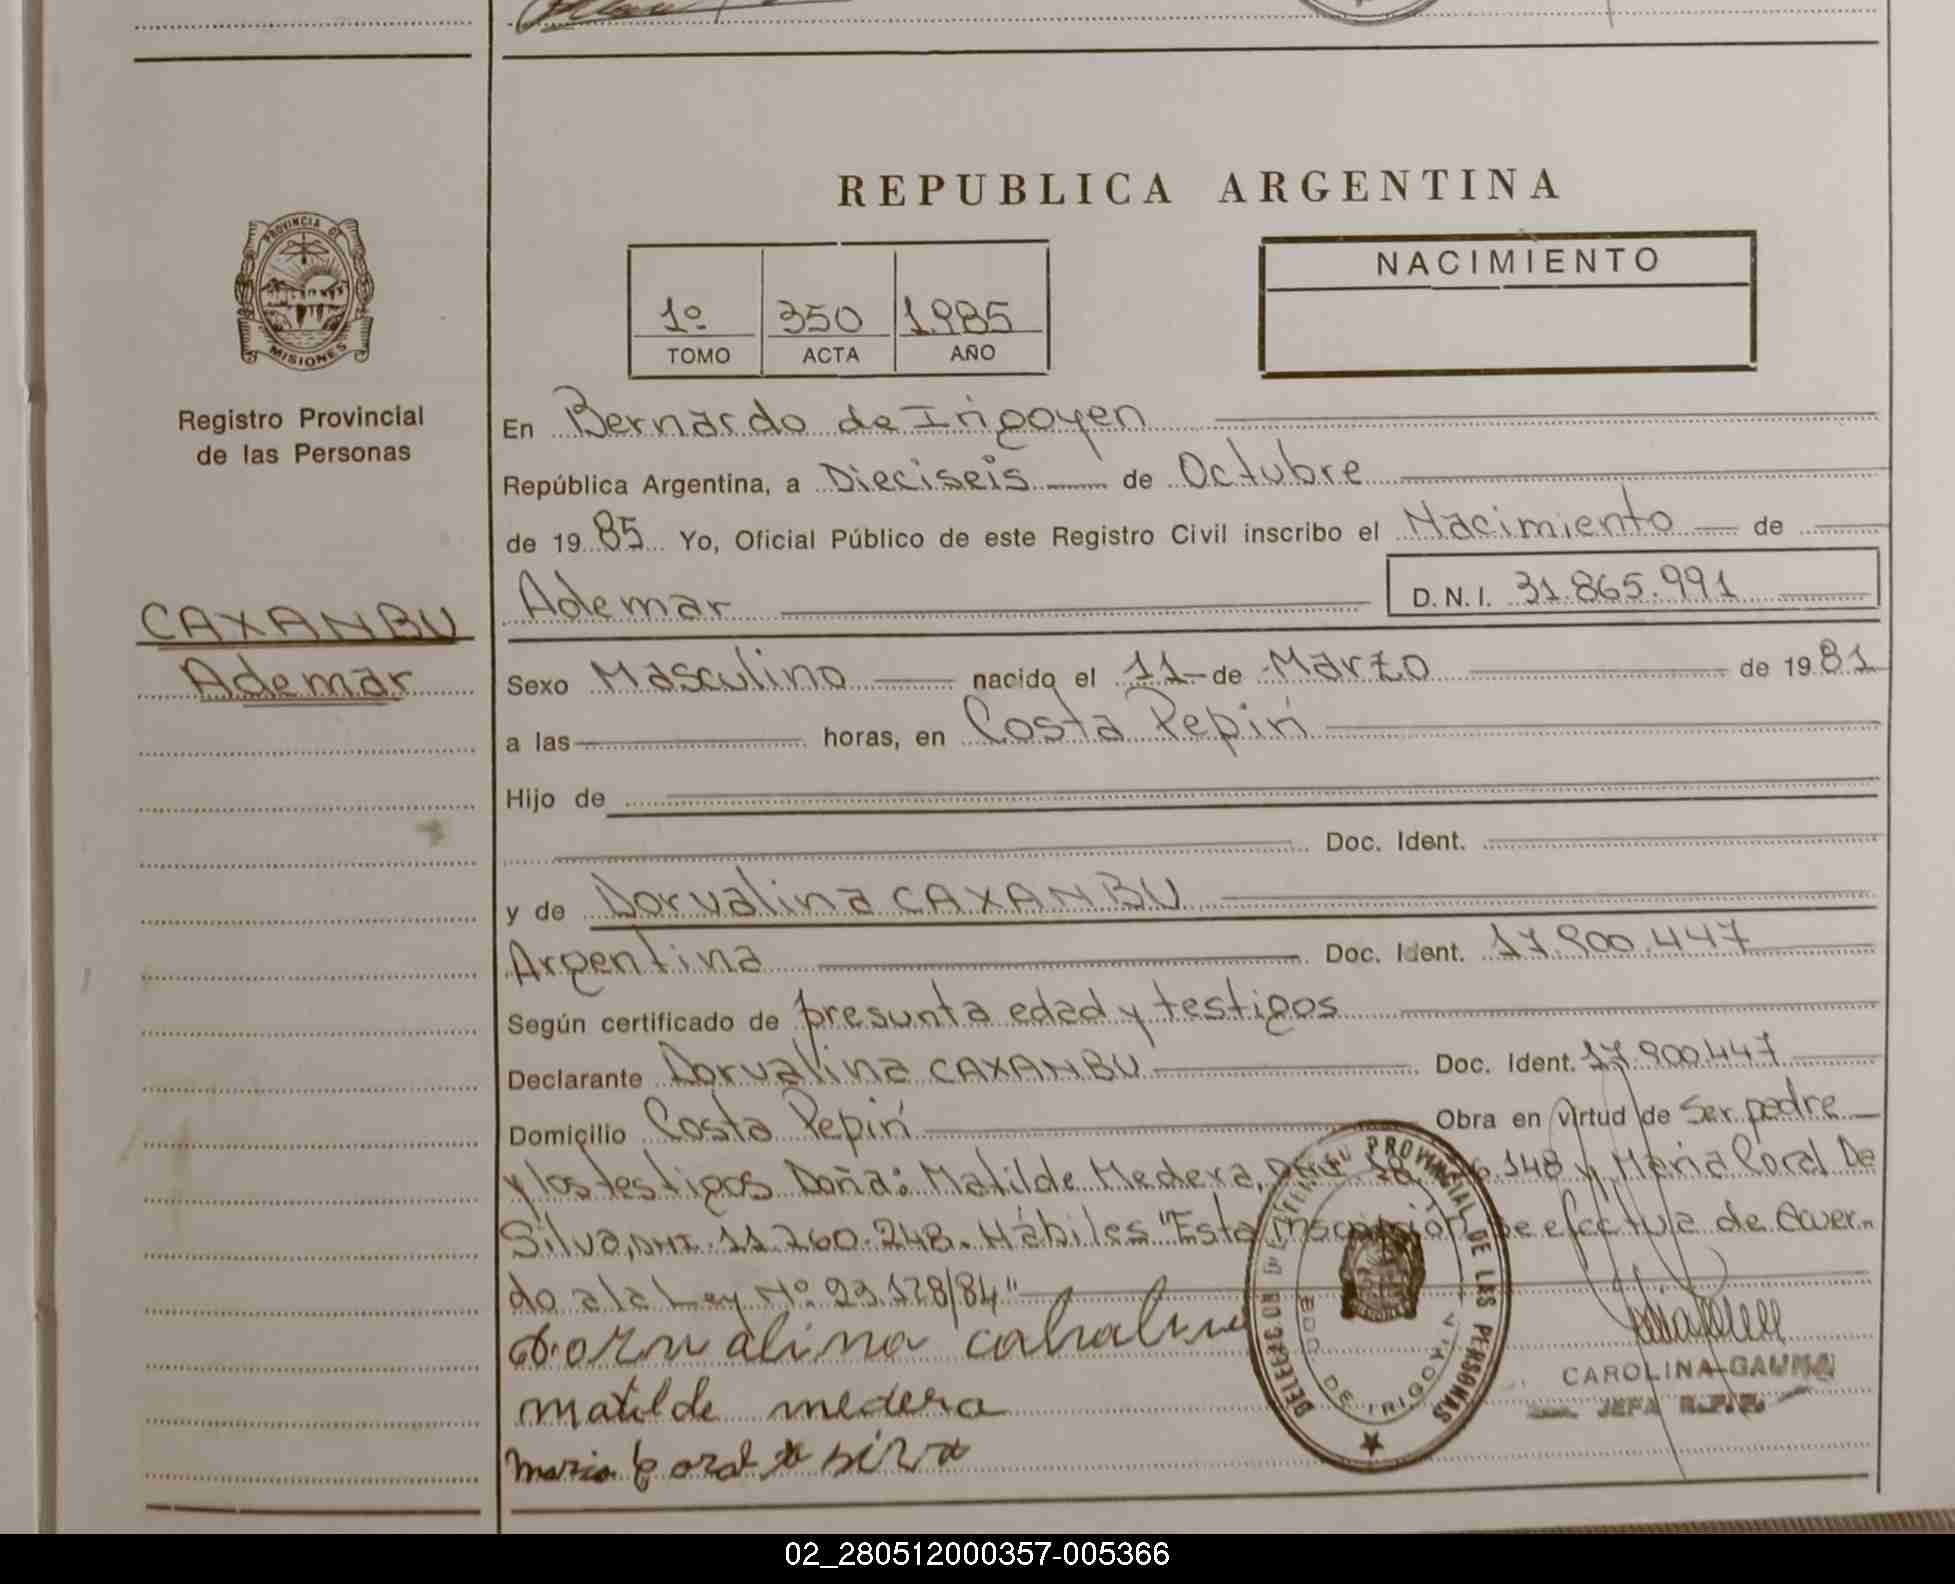 REPUBLICA ARGENTINA
PROVINCIA DE
MISIONES
Registro Provincial
de las Personas
1º 350 1985
TOMO ACTA AÑO
NACIMIENTO
En Bernardo de Irigoyen
República Argentina, a Dieciseis de Octubre
de 1985 Yo, Oficial Público de este Registro Civil inscribo el Nacimiento de
CAXANBU
Ademar
Ademar D.N.I. 31.865.991
Sexo Masculino nacido el 11 de Marzo de 1981
a las horas, en Costa Pepiri
Hijo de
Doc. Ident.
y de Dorvalina CAXANBU
Argentina Doc. Ident. 17.900.447
Según certificado de presunta edad y testigos
Declarante Dorvalina CAXANBU Doc. Ident. 17.900.447
Domicilio Costa Pepiri Obra en virtud de Ser padre
y los testigos Doña: Matilde Medera, 148 y Maria Coral De
Silva, DNI. 11.260.248. Hábiles "Esta inscripción se efectua de acuer
do a la Ley Nº 23.128/84"
matilde medera
maria coral
DELEGACION DEFENSA PROVINCIAL DE LAS PERSONAS
BDO. DE IRIGOYEN
CAROLINA GAUNA
JEFA R.P.P.
02_280512000357-005366